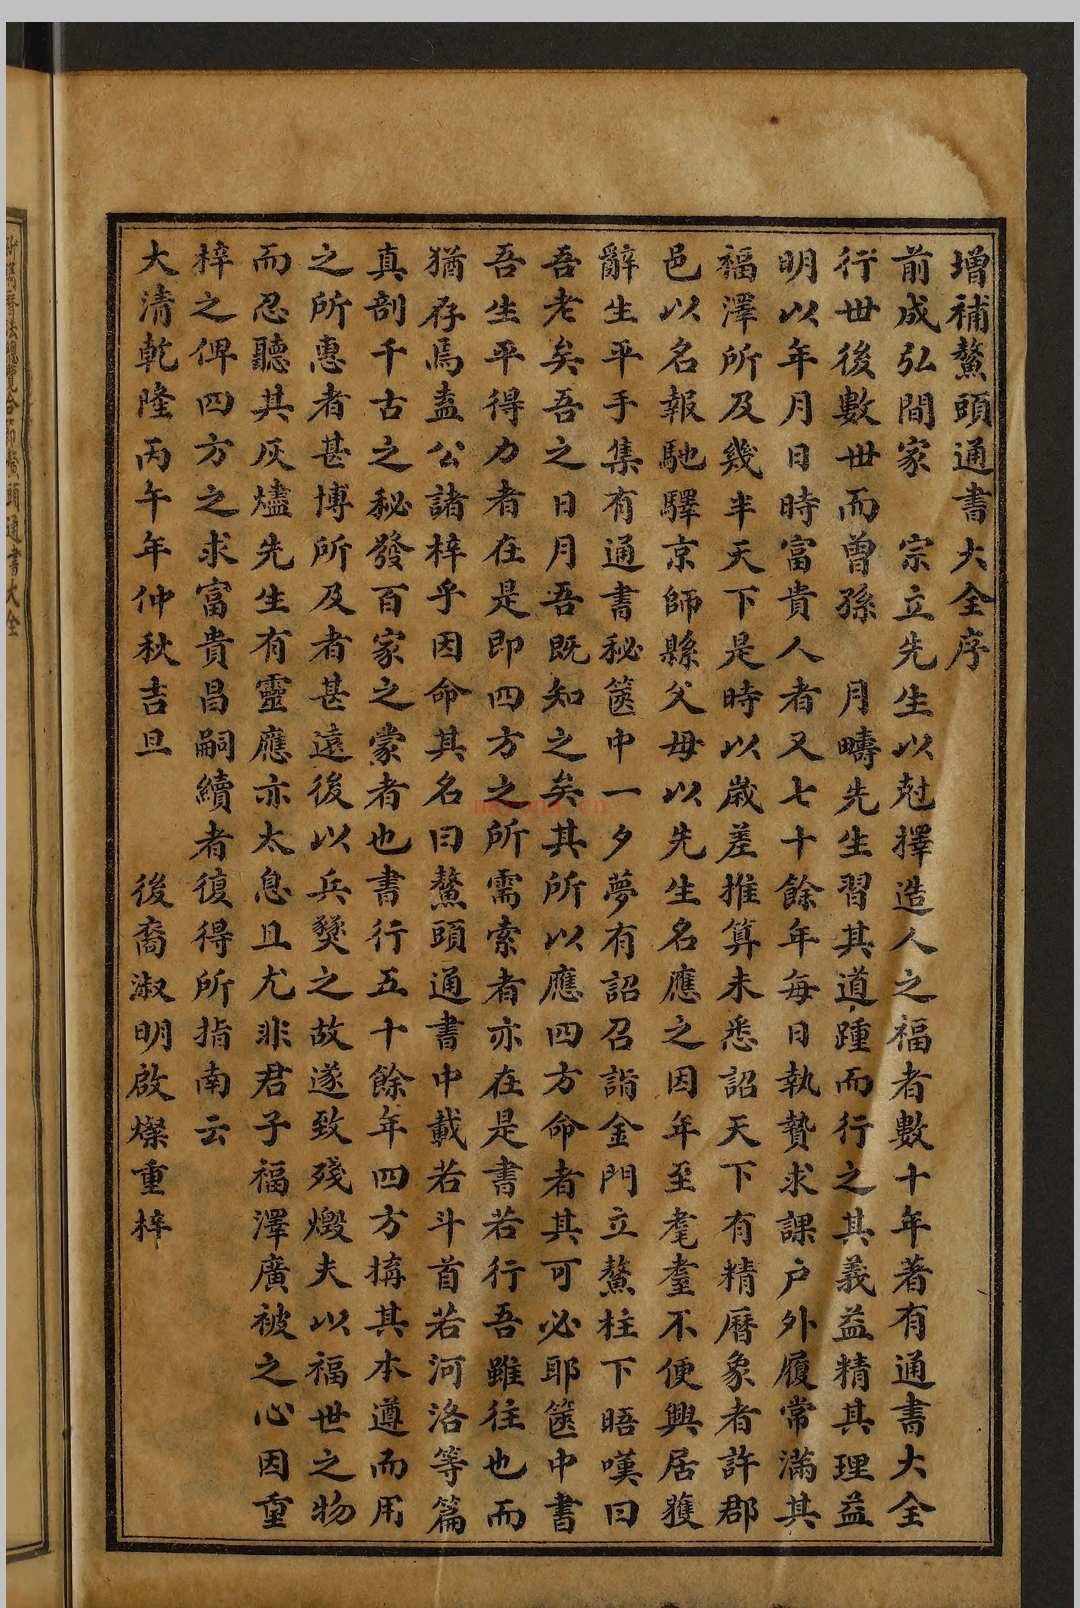 增補鰲頭通書大全序
前成弘間家 宗立先生以尅擇造人之福者數十年著有通書大全
行世後數世而曾孫 月疇先生習其道踵而行之其義益精其理益
明以年月日時富貴人者又七十餘年每日執贄求課户外履常滿其
福澤所及幾半天下是時以歲差推算未悉詔天下有精曆象者許郡
邑以名報馳驛京師縣父母以先生名應之因年至耄耋不便興居獲
辭生平手集有通書秘篋中一夕夢有詔召詣金門立鰲柱下晤嘆曰
吾老矣吾之日月吾既知之矣其所以應四方命者其可必耶篋中書
吾生平得力者在是即四方之所需索者亦在是書若行吾雖往也而
猶存焉盍公諸梓乎因命其名曰鰲頭通書中載若斗首若河洛等篇
真剖千古之秘發百家之蒙者也書行五十餘年四方搆其本遵而用
之所惠者甚博所及者甚遠後以兵燹之故遂致殘燬夫以福世之物
而忍聽其灰燼先生有靈應亦太息且尤非君子福澤廣被之心因重
梓之俾四方之求富貴昌嗣續者復得所指南云
大清乾隆丙午年仲秋吉旦 後裔淑明啟燦重梓
nayona.cn
頭通書大全